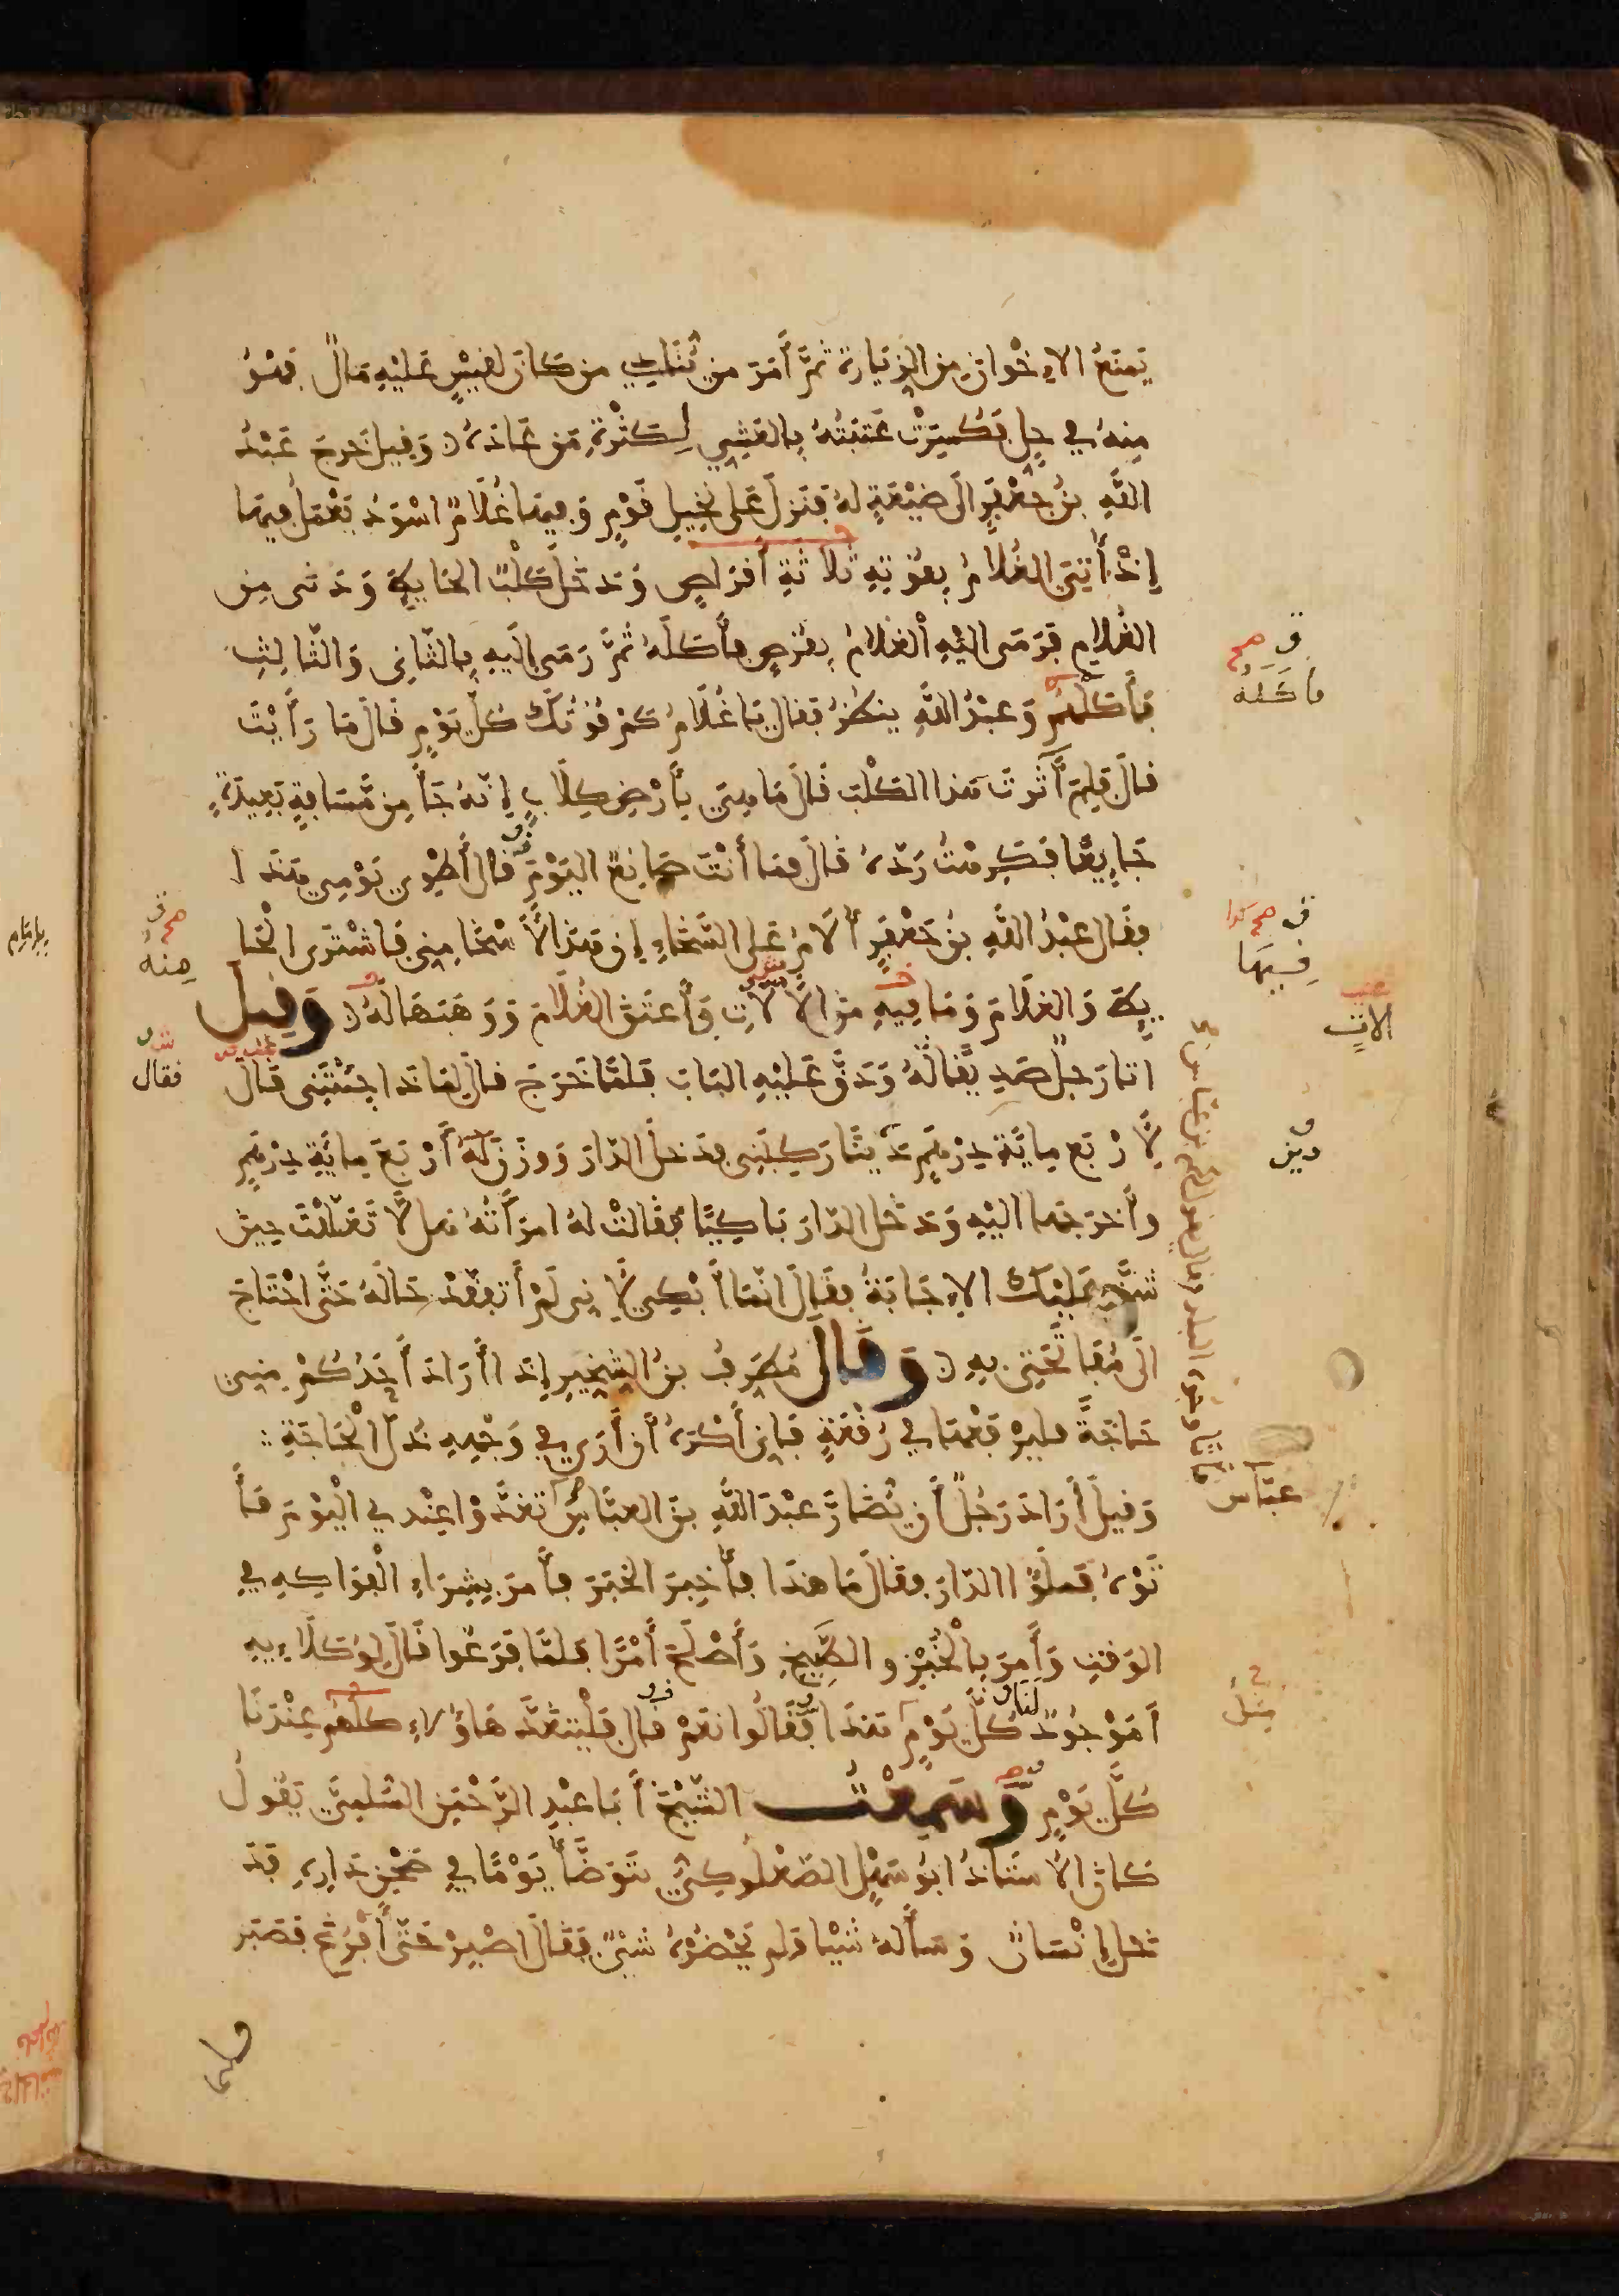 يَمنَعُ الاِخْوانَ مِنَ الزِيَارَةِ ثمَّ أَمَرَ من يُنَادِي من كَانَ لِقَيْسٍ عَلَيْهِ مَالٌ فَهُوَ
مِنهُ في حِلٍ فكُسِرَتْ عَتبَتُهُ بِالعَشِيِ لِكَثْرَةِ مَن عَادَهُ وَقيلَ خَرجَ عَبْدُ
اللَّهِ بنُ جَعْفَرٍ الَى ضَيْعَةٍ لهُ فَنَزَلَ عَلى نَخِيلِ قَوْمٍ وَفيهَا غُلَامٌ اسْوَدُ يَعْمَلُ فيهَا
إِذْ أَتَى الغُلامُ بِقُوْتِهِ ثَلاثَةِ أَقرَاصٍ وَدَخَلَ كَلْبٌ الحَايِطَ وَدَنَى مِن
الغُلامِ فَرَمَى اليْهِ الْغُلامُ بِقُرْصٍ فأَكَلَهُ ثُمَّ رَمَى إليهِ بِالثَّانِي وَالثَّالِثِ
فَأَكَلَهُمْ وَعبْدُ اللَّهِ ينظُرُ فقال يَا غُلَامُ كَمْ قُوتُكَ كُلَّ يَوْمٍ قَالَ مَا رَأَيْتَ
قالَ فَلِمَ آثَرْتَ هَذا الكَلْبَ قَالَ مَا هِيَ بِأَرْضِ كِلَابٍ إِنّهُ جَآءَ مِن مَّسَافةٍ بَعِيدَةٍ
جَايِعًا فكَرِهْتُ رَدَّهُ قَالَ فمَا أَنْتَ صَانِعٌ اليَوْمَ قالَ أَطْوِي يَوْمِي هَذَا
فقَالَ عَبْدُ اللَّهِ بنُ جَعْفَرٍ أُلَامُ عَلى السَّخَاءِ إِن هَذا لَأَسْخَا مِنِي فَاشْتَرَى الْحَا
يِطَ وَالغُلَامَ وَمَا فِيهِ مِنَ الْآلَاتِ وَأَعتَقَ الغُلَامَ وَوَهَبَهَا لَهُ وَقِيلَ
اتَا رَجلٌ صَدِيقًا لَهُ وَدَقَّ عَلَيْهِ البَابَ فلَمَّا خَرَجَ قالَ لِمَاذَا جِئْتَنِي قَالَ
لِأَرْبَعِ مِايَةِ دِرْهَمٍ دَيْنًا رَكِبَنِي فدَخَلَ الدَّارَ وَوزَنَ لَهُ أَرْبَعَ مِايَةِ دِرْهَمٍ
وأَخرَجَهَا اليْهِ وَدَخَلَ الدّارَ بَاكِيًا فقَالتْ لهُ امرَأَتُهُ هَلَّا تَعَلَّلْتَ حِينَ
شَقَّ عَلَيْكَ الاِجَابَةُ فقَالَ انَّمَا أَبْكِي لِأَنِي لَمْ أَتَفَقَّدْ حَالَهُ حَتَّى احْتَاجَ
الَى مُفَاتَحَتِي بِهِ وَقَالَ مُطَرِّفُ بنُ الشِخِيرِ إِذَا أَرَادَ أَحَدُكُمْ مِنِي
حَاجَةً فليرْفَعْهَا في رُقْعَةٍ فَإِنِي أَكْرَهُ أَنْ أَرَى في وَجْهِهِ ذُلَّ الْحَاجَةِ
وَقيلَ أَرَادَ رَجُلٌ أَنْ يُضَارَّ عَبْدَ اللَّهِ بنَ العبَّاسِ تَغَدَّوْا عِنْدِي الْيَوْمَ فَأَ
تَوْهُ فَملَؤُا الدّارَ فقالَ مَا هذَا فأُخبِرَ الخَبَرَ فأَمرَ بِشِرَاءِ الْفَوَاكِهِ في
الوَقتِ وَأَمرَ بِالْخُبْزِ والطَّبِيخِ وَأَصْلَحَ أَمْرًا فلمَّا فَرَغُوا قَالَ لِوُكَلَاءِيهِ
أَمَوْجُودٌ لَنَا كُلَّ يَوْمٍ هَذَا فَقَالُوا نعَمْ قالَ فَلْيَتَغَدَّ هَاؤُلاءِ كلُّهُم عِنْدَنَا
كُلَّ يَوْمٍ وَسَمِعْتُ الشّيْخَ أَبَا عَبْدِ الرَّحْمَنِ السُّلَمِيَّ يَقُولُ
كَانَ الأُسْتَاذُ ابُو سَهْلِ الصُعْلُوكِيُّ يَتَوَضَّأُ يَوْمًا في صَحْنِ دَارِهِ فَدَ
خَلَ إِنْسَانٌ وَسَأَلَهُ شَيْئا فَلم يَحْضُرْهُ شَيْئٌ فَقَالَ اصْبِرْ حَتَّى أَفْرُغَ فَصَبَر
ق صح
فأكله
ق صح
فيهَا
الات
صح
مِنهُ
فقال
دين
عبّاس
مِثل
فلما